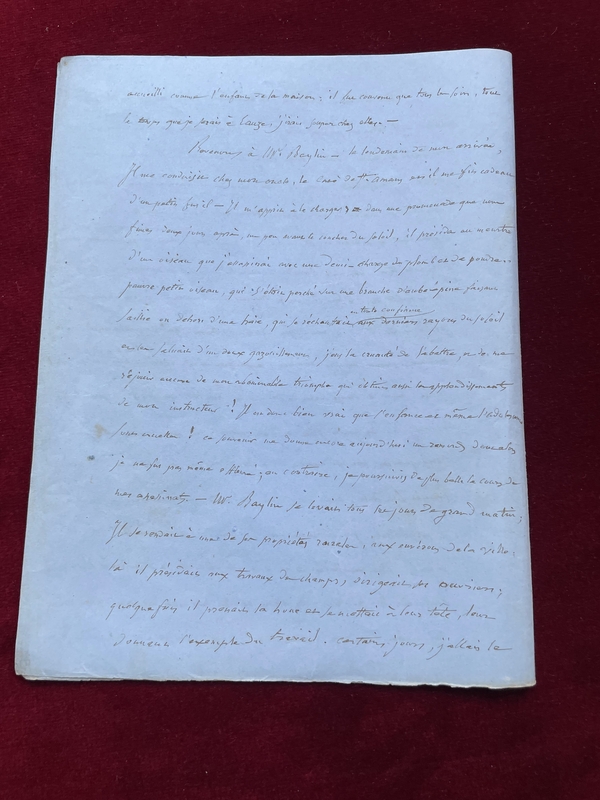 accueilli comme l'enfant de la maison; il fut convenu que tous les soirs, tout
le temps que je serais à Eauze, j'irais souper chez elle. —
Revenons à Mr. Baylin — le lendemain de mon arrivée,
Il me conduisit chez mon oncle, le curé de St. Amans
d'un petit fusil — Il m'apprit à le charger, dans une promenade que nous
fîmes deux jours après, un peu avant le coucher du soleil, il présida au meurtre
d'un oiseau que j'assassinai avec une demie charge de plomb et de poudre.
pauvre petit oiseau, qui s'était perché sur une branche d'aube-épine faisant
saillie en dehors d'une haie, qui se réchauffait en toute confiance aux derniers rayons du soleil
saluait d'un doux gazouillement, j'eus la cruauté de l'abattre, et de me
réjouir encore de mon abominable triomphe qui obtint aussi les applaudissements
de mon instructeur! Il est donc bien vrai que l'enfance et même
sans! ce souvenir me donne encore aujourd'hui un remords
je n'en fus pas même effleuré; au contraire, je poursuivis de plus belle le cours de
mes assassinats. — Mr. Baylin se levait tous les jours de grand matin;
Il se rendait à une de ses propriétés rurales, aux environs de la ville.
là il présidait aux travaux des champs, dirigeait ses ouvriers;
quelquefois il prenait la houe et se mettait à leur tête, leur
donnant l'exemple du travail. certains jours, j'allais le